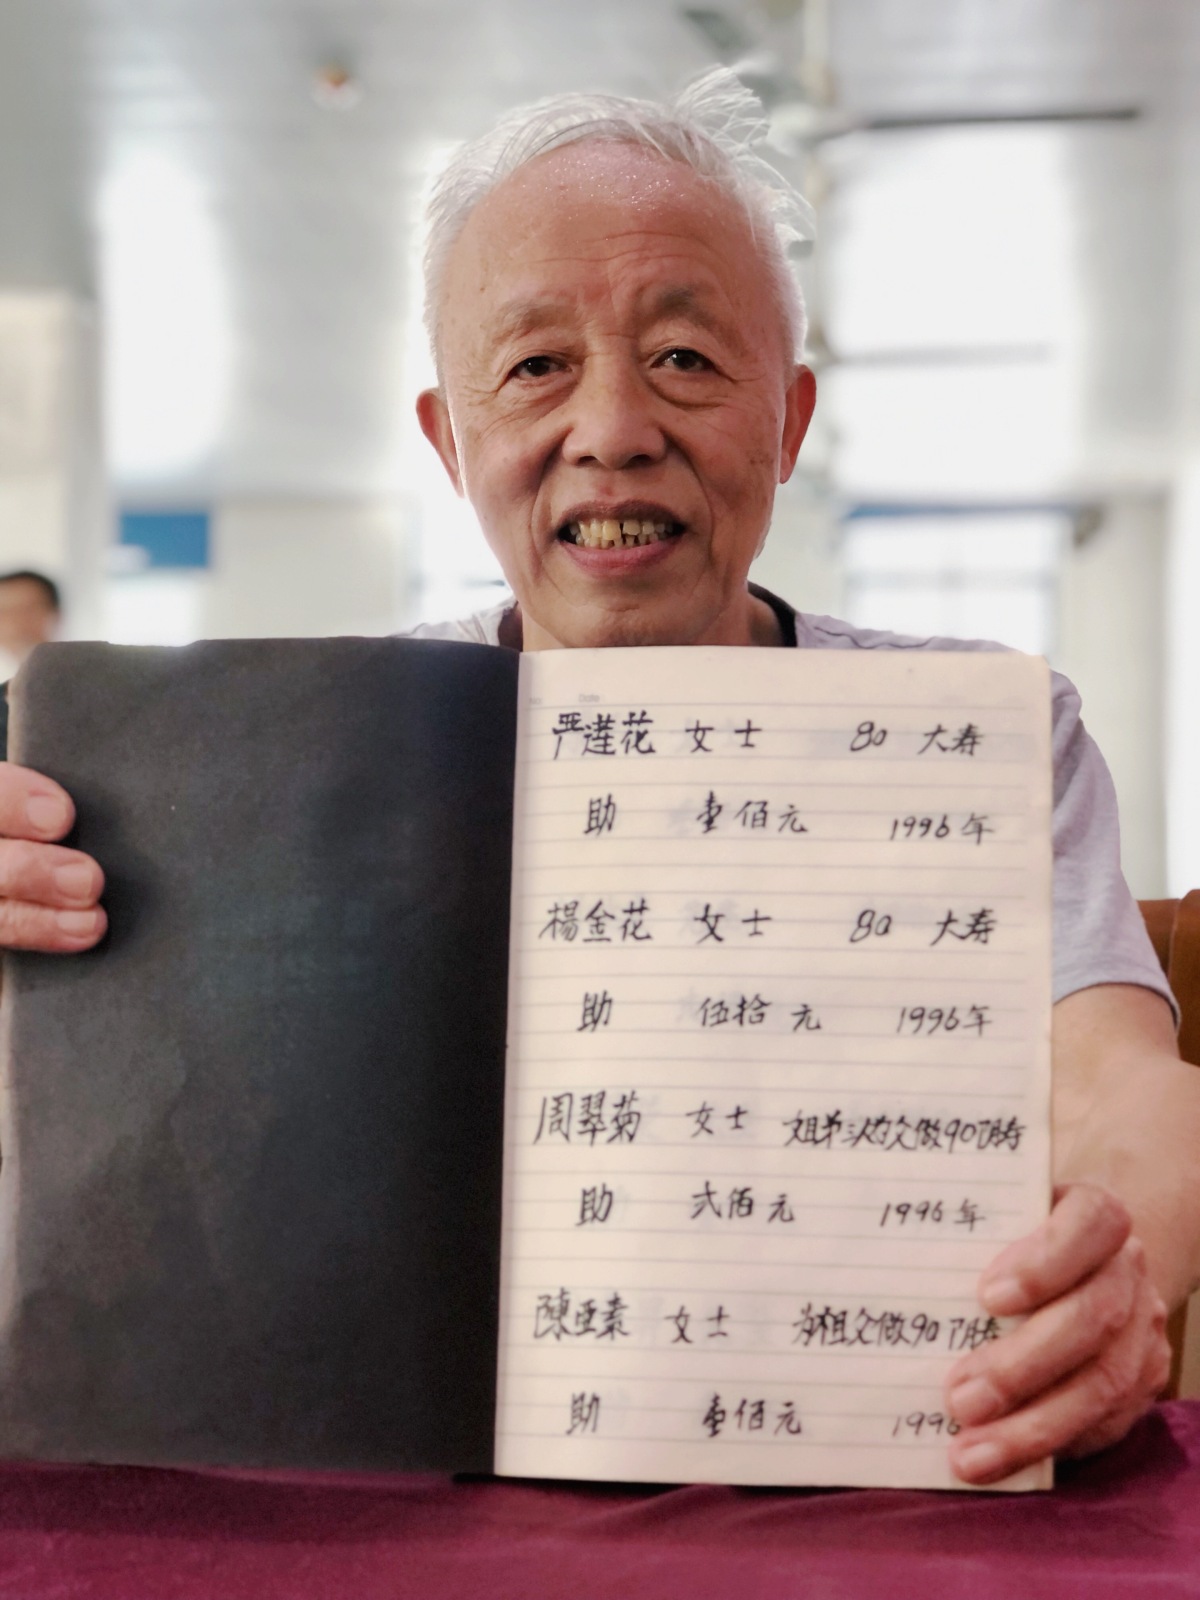 No. Date
严莲花 女士 80 大寿
助 壹佰元 1996年
楊金花 女士 80 大寿
助 伍拾元 1996年
周翠菊 女士 父做90阴寿
助 弍佰元 1996年
陳亜素 女士 为祖父做90阴寿
助 壹佰元 1996